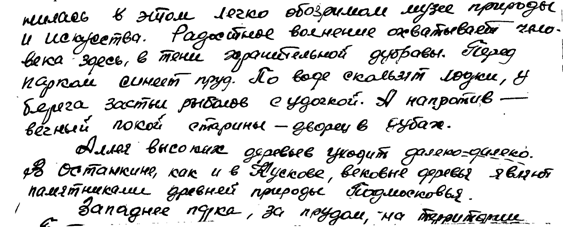 нилась в этом легко обозримом музее природы
и искусства. Радостное волнение охватывает чело-
века здесь, в тени хранительной дубравы. Перед
парком синеет пруд. По воде скользят лодки, у
берега застыл рыболов с удочкой. А напротив —
вечный покой старины – дворец в дубах.
Аллея высоких деревьев уходит далеко-далеко.
В Останкине, как и в Кускове, вековые деревья являют
памятниками древней природы Подмосковья.
Западнее парка, за прудом, на территории